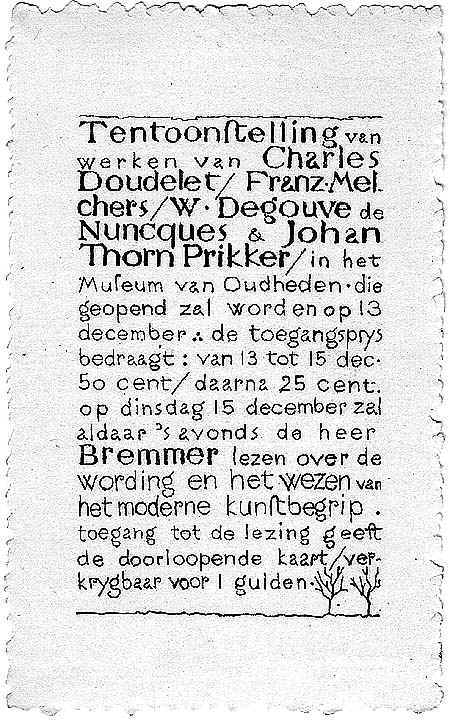 Tentoonſtelling van
werken van Charles
Doudelet/ Franz·Mel⸗
chers/W·Degouve de
Nuncques & Johan
Thorn Prikker/in het
Muſeum van Oudheden·die
geopend zal worden op 13
december ∴ de toegangsprys
bedraagt: van 13 tot 15 dec·
50 cent/daarna 25 cent.
op dinsdag 15 december zal
aldaar 's avonds de heer
Bremmer lezen over de
wording en het wezen van
het moderne kunſtbegrip .
toegang tot de lezing geeft
de doorloopende kaart/ver⸗
krygbaar voor 1 gulden·